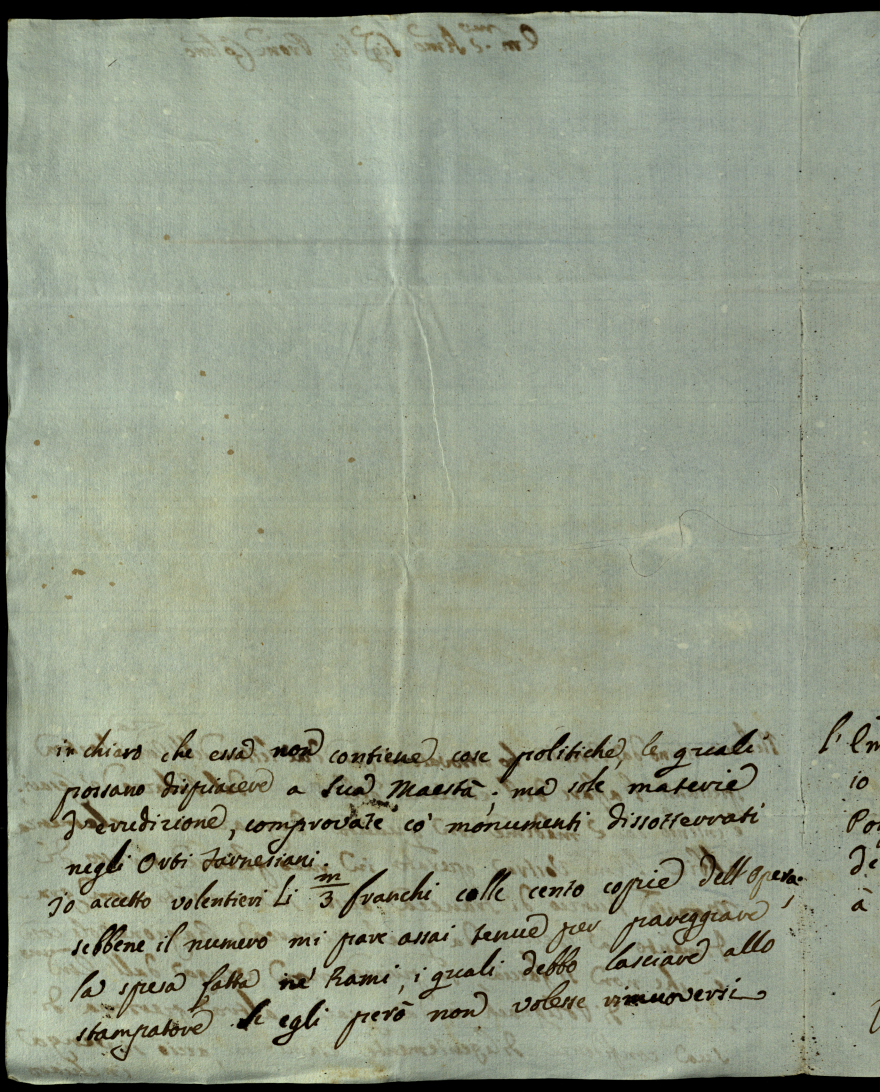 in chiaro che essa non contiene cose politiche, le quali
possano dispiacere a Sua Maestà; ma sole materie
d'erudizione, comprovate co' monumenti dissotterrati
negli Orti Farnesiani.
Io accetto volentieri Li m/3 franchi colle cento copie dell'opera;
sebbene il numero mi pare assai tenue per pareggiare
la spesa fatta ne' Rami, i quali debbo lasciare allo
stampatore. Se egli però non volesse rimuoversi
l'
io
à